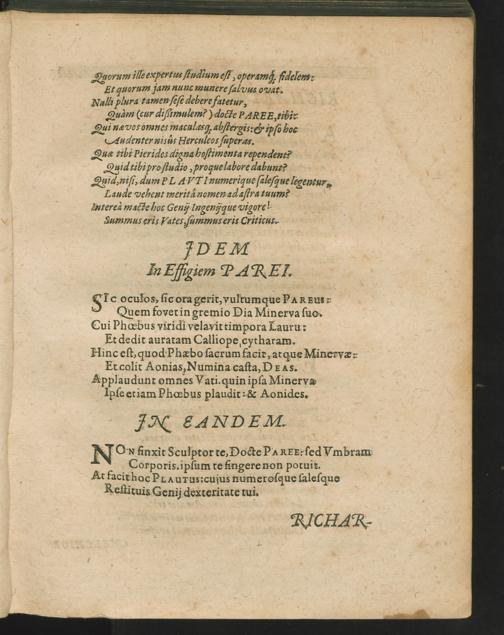 Quorum ille expertus studium est, operamq́, fidelem:
Et quorum jam nunc munere salvus ovat.
Nulli plura tamen sese debere fatetur,
Quàm (cur dissimulem?) docte PAREE, tibi:
Qui nævos omnes maculasq, abstergis: & ipso hoc
Audenter nisûs Herculeos superas.
Quæ tibi Pierides digna hostimenta rependent?
Quid tibi pro studio, proque labore dabunt?
Quid, nisi, dum PLAVTI numerique salesque legentur,
Laude vehent meritâ nomen ad astra tuum?
Intereà macte hoc Genij Ingenijque vigore!
Summus eris Vates, summus eris Criticus.
IDEM
In Effigiem PAREI.
SIc oculos, sic ora gerit, vultumque PAREUS:
Quem fovet in gremio Dia Minerva suo.
Cui Phœbus viridi velavit timpora Lauru:
Et dedit auratam Calliope, cytharam.
Hinc est, quod Phæbo sacrum facit, atque Minervæ:
Et colit Aonias, Numina casta, DEAS.
Applaudunt omnes Vati. quin ipsa Minerva
Ipse etiam Phœbus plaudit: & Aonides.
IN EANDEM.
NON finxit Sculptor te, Docte PAREE: sed Vmbram
Corporis. ipsum te fingere non potuit.
At facit hoc PLAUTUS: cujus numerosque salesque
Restituis Genij dexteritate tui.
RICHAR-